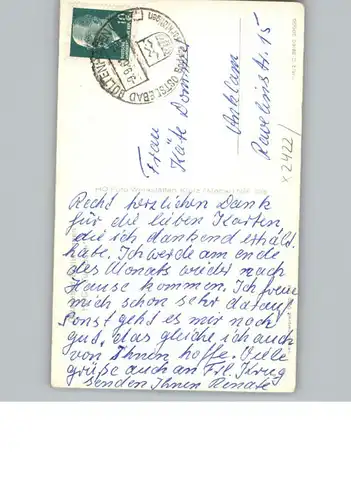 10
OSTSEEBAD BOLTENHAGEN
Frau
Käte
Anklam
Ravelinstr. 15
x 2422/
Recht herzlichen Dank
für die lieben Karten
die ich dankend erhalt.
habe. Ich werde am ende
des Monats wieder nach
Hause kommen. Ich freu
mich schon sehr darauf!
Sonst geht es mir noch
gut, das gleiche ich auch
von Ihnen hoffe. Viele
grüße auch an Frl. Krug
senden Ihnen Renate